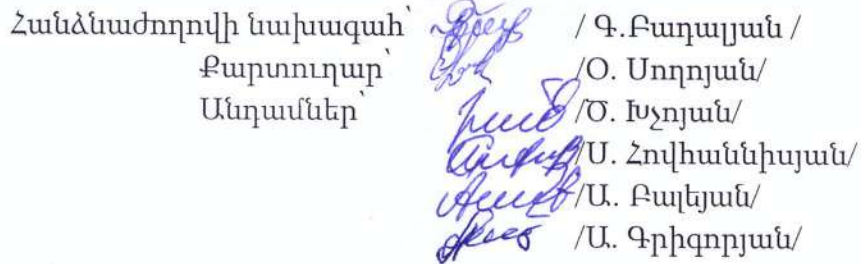 Հանձնաժողովի նախագահ՝ / Գ.Բադալյան /
Քարտուղար՝ /Օ. Սողոյան/
Անդամներ՝ /Ծ. Խչոյան/
/Ս. Հովհաննիսյան/
/Ա. Բալեյան/
/Ա. Գրիգորյան/